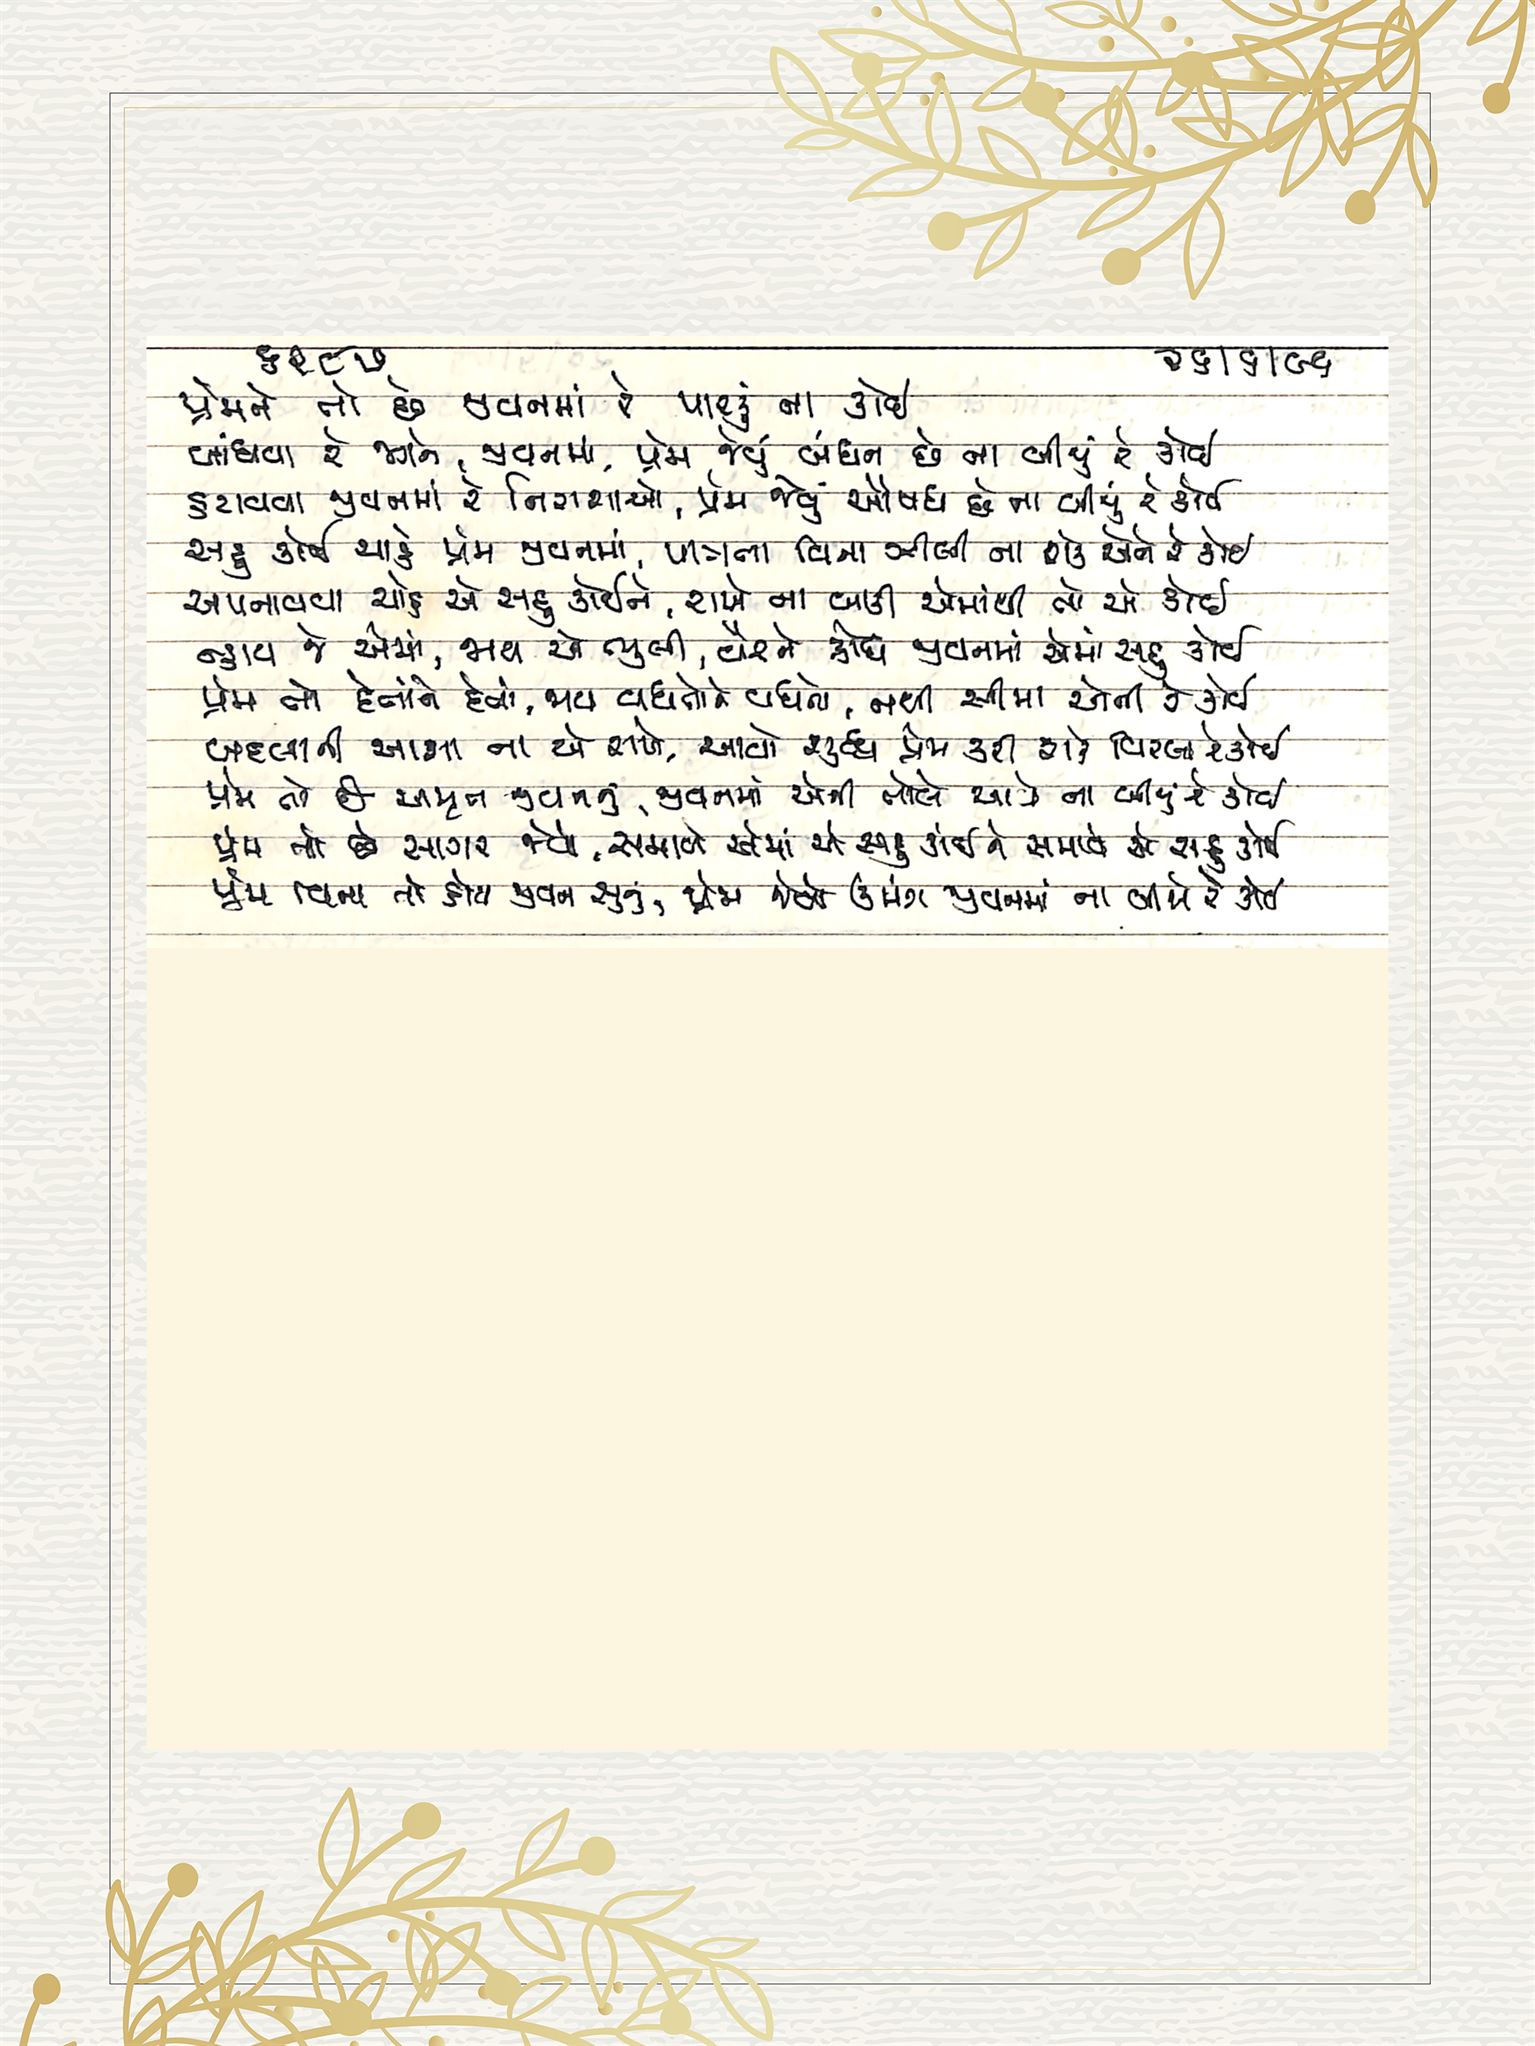 ૬૨૮૭ ૨૬।૬।૯૬
પ્રેમને તો છે જીવનમાં રે પારકું ના કોઈ
બાંધવા રે જગને, જીવનમાં, પ્રેમ જેવું બંધન છે ના બીજું રે કોઈ
હરાવવા જીવનમાં રે નિરાશાઓ, પ્રેમ જેવું ઔષધ છે ના બીજું રે કોઈ
સહુ કોઈ ચાહે પ્રેમ જીવનમાં, પાત્રતા વિના ઝીલી ના શકે એને રે કોઈ
અપનાવવા ચાહે એ સહુ કોઈને, રાખે ના બાકી એમાંથી તો એ કોઈ
ન્હાય જે એમાં, જાય એ ભુલી, વૈરને ક્રોધ જીવનમાં એમાં સહુ કોઈ
પ્રેમ તો દેતાંને દેતાં, જાય વધતોને વધતો, નથી સીમા એની રે કોઈ
બદલાની આશા ના એ રાખે, આવો શુદ્ધ પ્રેમ કરી શકે વિરલા રે કોઈ
પ્રેમ તો છે અમૃત જીવનનું, જીવનમાં એની તોલે આવે ના બીજું રે કોઈ
પ્રેમ તો છે સાગર જેવો, સમાવે એમાં એ સહુ કોઈને સમાવે એ સહુ કોઈ
પ્રેમ વિના તો હોય જીવન સુનું, પ્રેમ જેવો ઉમંગ જીવનમાં ના બીજો રે કોઈ